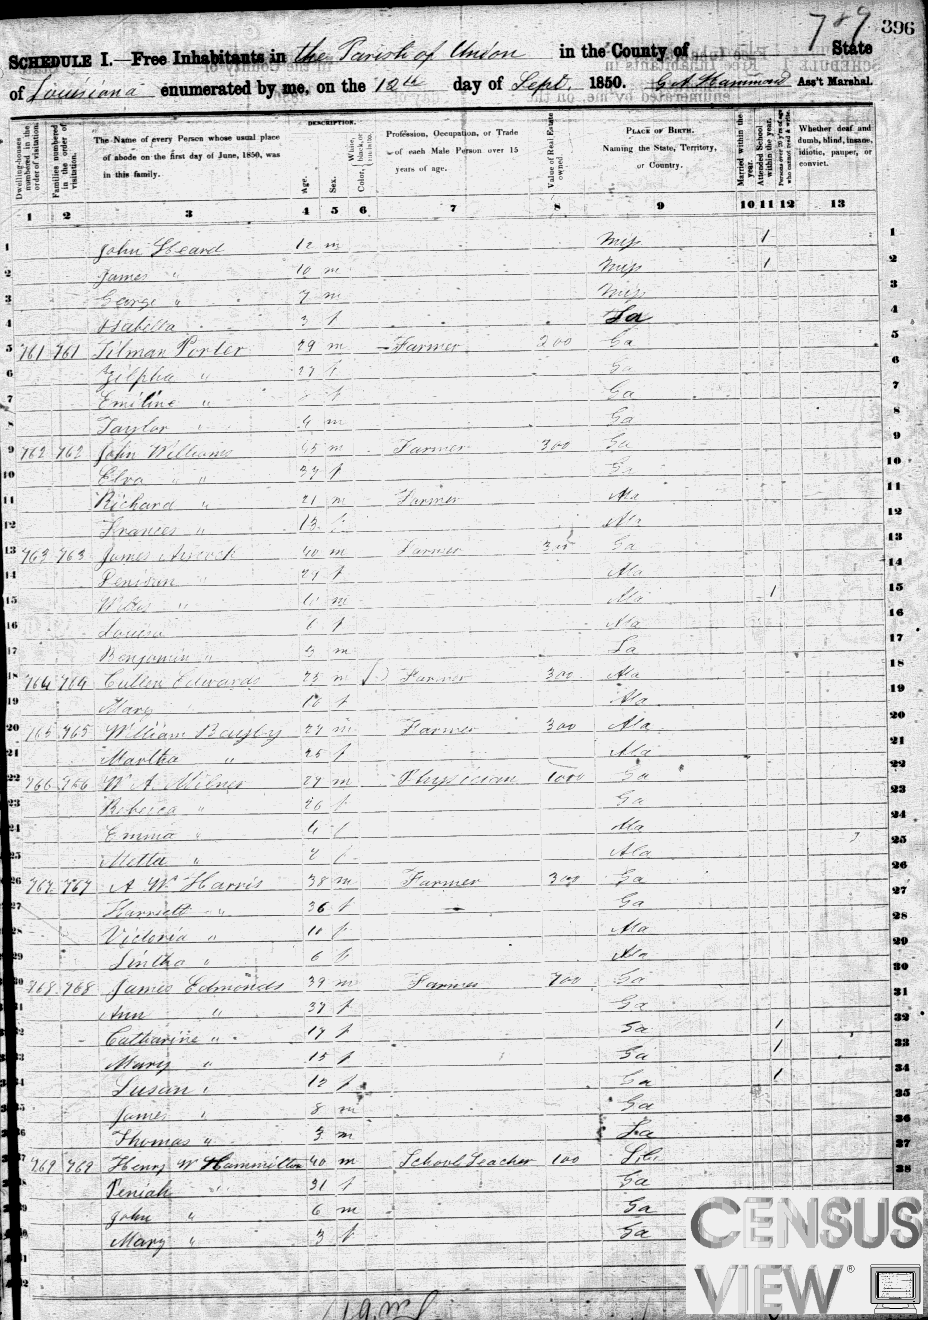 789 396
SCHEDULE I.—Free Inhabitants in the Parish of Union in the County of State
of Louisiana enumerated by me, on the 12th day of Sept. 1850. Ass't Marshal.
DESCRIPTION.
Dwelling-houses numbered in the order of visitation.
Families numbered in the order of visitation.
The Name of every Person whose usual place of abode on the first day of June, 1850, was in this family.
Age.
Sex.
Color, White, black, or mulatto.
Profession, Occupation, or Trade of each Male Person over 15 years of age.
Value of Real Estate owned.
PLACE OF BIRTH. Naming the State, Territory, or Country.
Married within the year.
Attended School within the year.
Persons over 20 y'rs of age who cannot read & write.
Whether deaf and dumb, blind, insane, idiotic, pauper, or convict.
1 2 3 4 5 6 7 8 9 10 11 12 13
1 John Heard 12 m Miss 1 1
2 James " 10 m Miss 1 2
3 George " 7 m Miss 3
4 Isabella 3 f La 4
5 761 761 Tilman Porter 29 m Farmer 200 Ga 5
6 Zilpha " 27 f Ga 6
7 Emiline " f Ga 7
8 Taylor " 4 m Ga 8
9 762 762 John Williams 45 m Farmer 300 Ga 9
10 " " 37 f Ga 10
11 Richard " 21 m Farmer Ala 11
12 Frances " 13 f Ala 12
13 763 763 James 40 m Farmer 300 Ga 13
14 29 f Ala 14
15 " m Ala 1 15
16 Louisa 6 f Ala 16
17 Benjamin " 3 m La 17
18 764 764 Cullen Edwards 25 m Farmer 300 Ala 18
19 Mary " 18 f Ala 19
20 765 765 William 27 m Farmer 300 Ala 20
21 Martha " 25 f Ala 21
22 766 766 W A Milner 27 m Physician 1000 Ga 22
23 Rebecca " 26 f Ga 23
24 Emma " 4 f Ala 24
25 " 2 f Ala 25
26 767 767 A W Harris 38 m Farmer 300 Ga 26
27 Harriett " 36 f Ga 27
28 Victoria " 10 f Ala 28
29 " 6 f Ala 29
30 768 768 James Edmonds 39 m Farmer 700 Ga 30
31 Ann " 37 f Ga 31
32 Catharine " 17 f Ga 1 32
33 Mary " 15 f Ga 1 33
34 Susan " 12 f Ga 1 34
35 James " 8 m Ga 35
36 Thomas " 3 m La 36
37 769 769 Henry W Hammilton 40 m School Teacher 100 37
38 Peniah " 31 f Ga 38
39 John " 6 m Ga
40 Mary " 3 f Ga
41
42
CENSUS
VIEW®